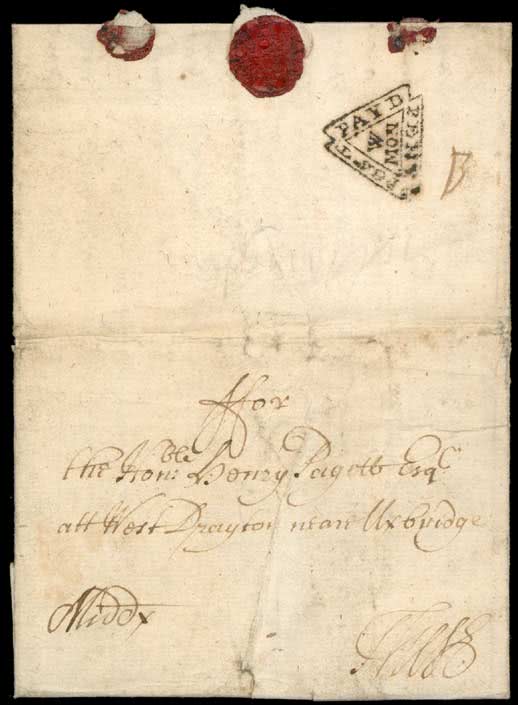 PAYD
PENY
POST
W
MON
ffor
the Honble Henry Pagett Esqr
att West Drayton near Uxbridge
Middx